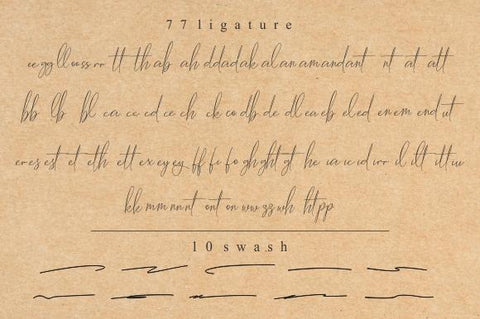 77 ligature
ee gg ll oo ss rr tt th ab ah dd ad ak al an am and ant nt at att
bb lb bl ca cc cd ce ch ck co db de dl ea eb el ed en em end ut
er es est et eth ett ex ey eg ff fe fo gh ght gt he ia ic id irr il ilt itt iu
kk mm nn nt ont on ww zz wh ht pp
10 swash